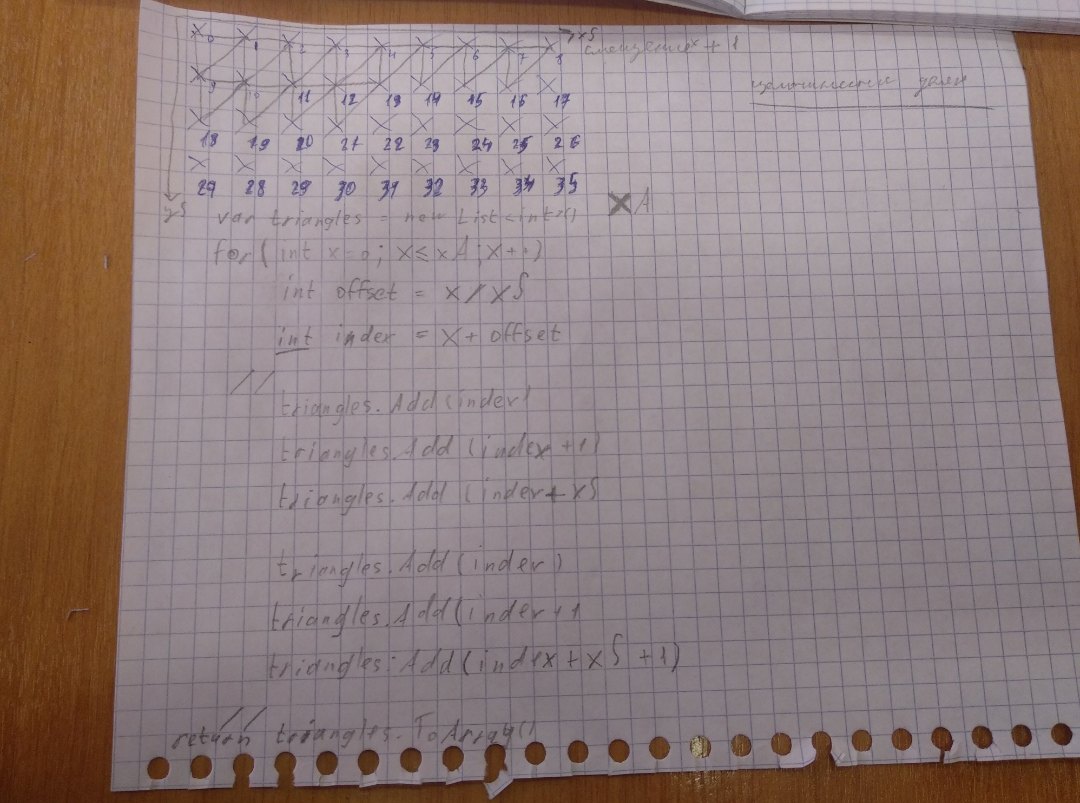 0 1 2 3 4 5 6 7 8 xS
смещение + 1
9 10 11 12 13 14 15 16 17
целочисленное деление
18 19 20 21 22 23 24 25 26
27 28 29 30 31 32 33 34 35
yS
XA
var triangles = new List<int>()
for( int x=0; x≤xA; x++)
int offset = x / xS
int index = x + offset
//
triangles.Add(index)
triangles.Add (index +1)
triangles.Add (index+xS
triangles.Add(index)
triangles.Add(index+1
triangles.Add(index+xS+1)
//
return triangles.ToArray()